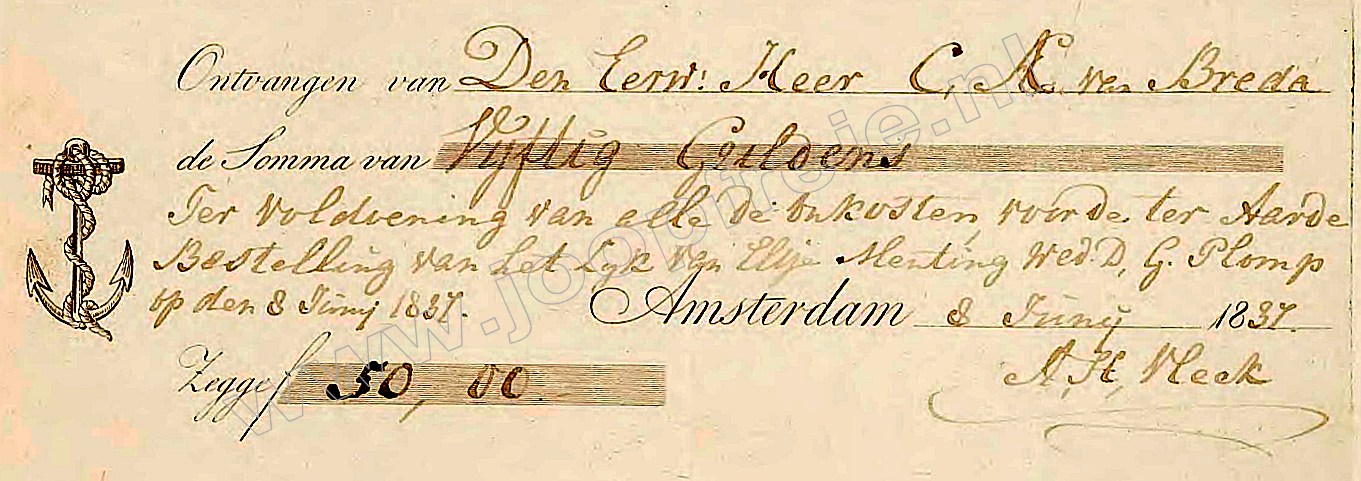 Ontvangen van Den Eerw: Heer C, A. van Breda
de Somma van Vyftig Guldens
Ter voldoening van alle de onkosten, voor de ter Aarde
Bestelling van het Lyk van Elsje Menting Wed: D, G. Plomp
op den 8 Junij 1837.
Amsterdam 8 Junij 1837.
Zegge f 50,00
A, H, Vleck
www.joopfreie.nl